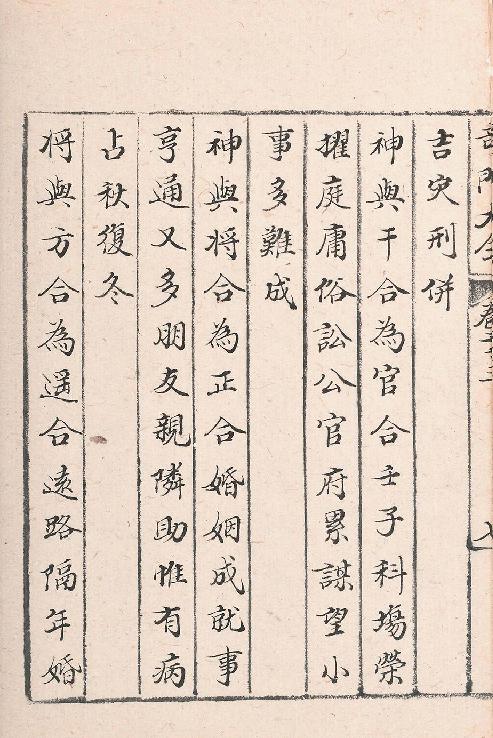 吉灾刑併
神與干合為官合壬子科場榮
擢庭庸俗訟公官府累謀望小
事多難成
神與將合為正合婚姻成就事
亨通又多朋友親隣助惟有病
占秋復冬
將與方合為遥合遠路隔年婚